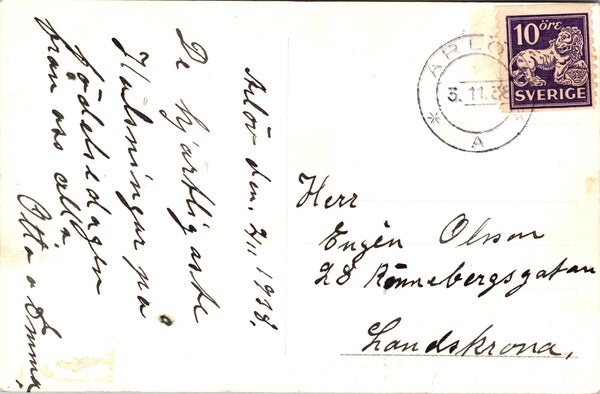 Arlöv den, 2/11 1938.
De hjärtligaste
Hälsningar på
födelsedagen
från oss alla
Otto o Emma,
ARLÖV
3.11.38
A
10 ÖRE
SVERIGE
Herr
Eugèn Olsson
28 Rönnebergsgatan
Landskrona,